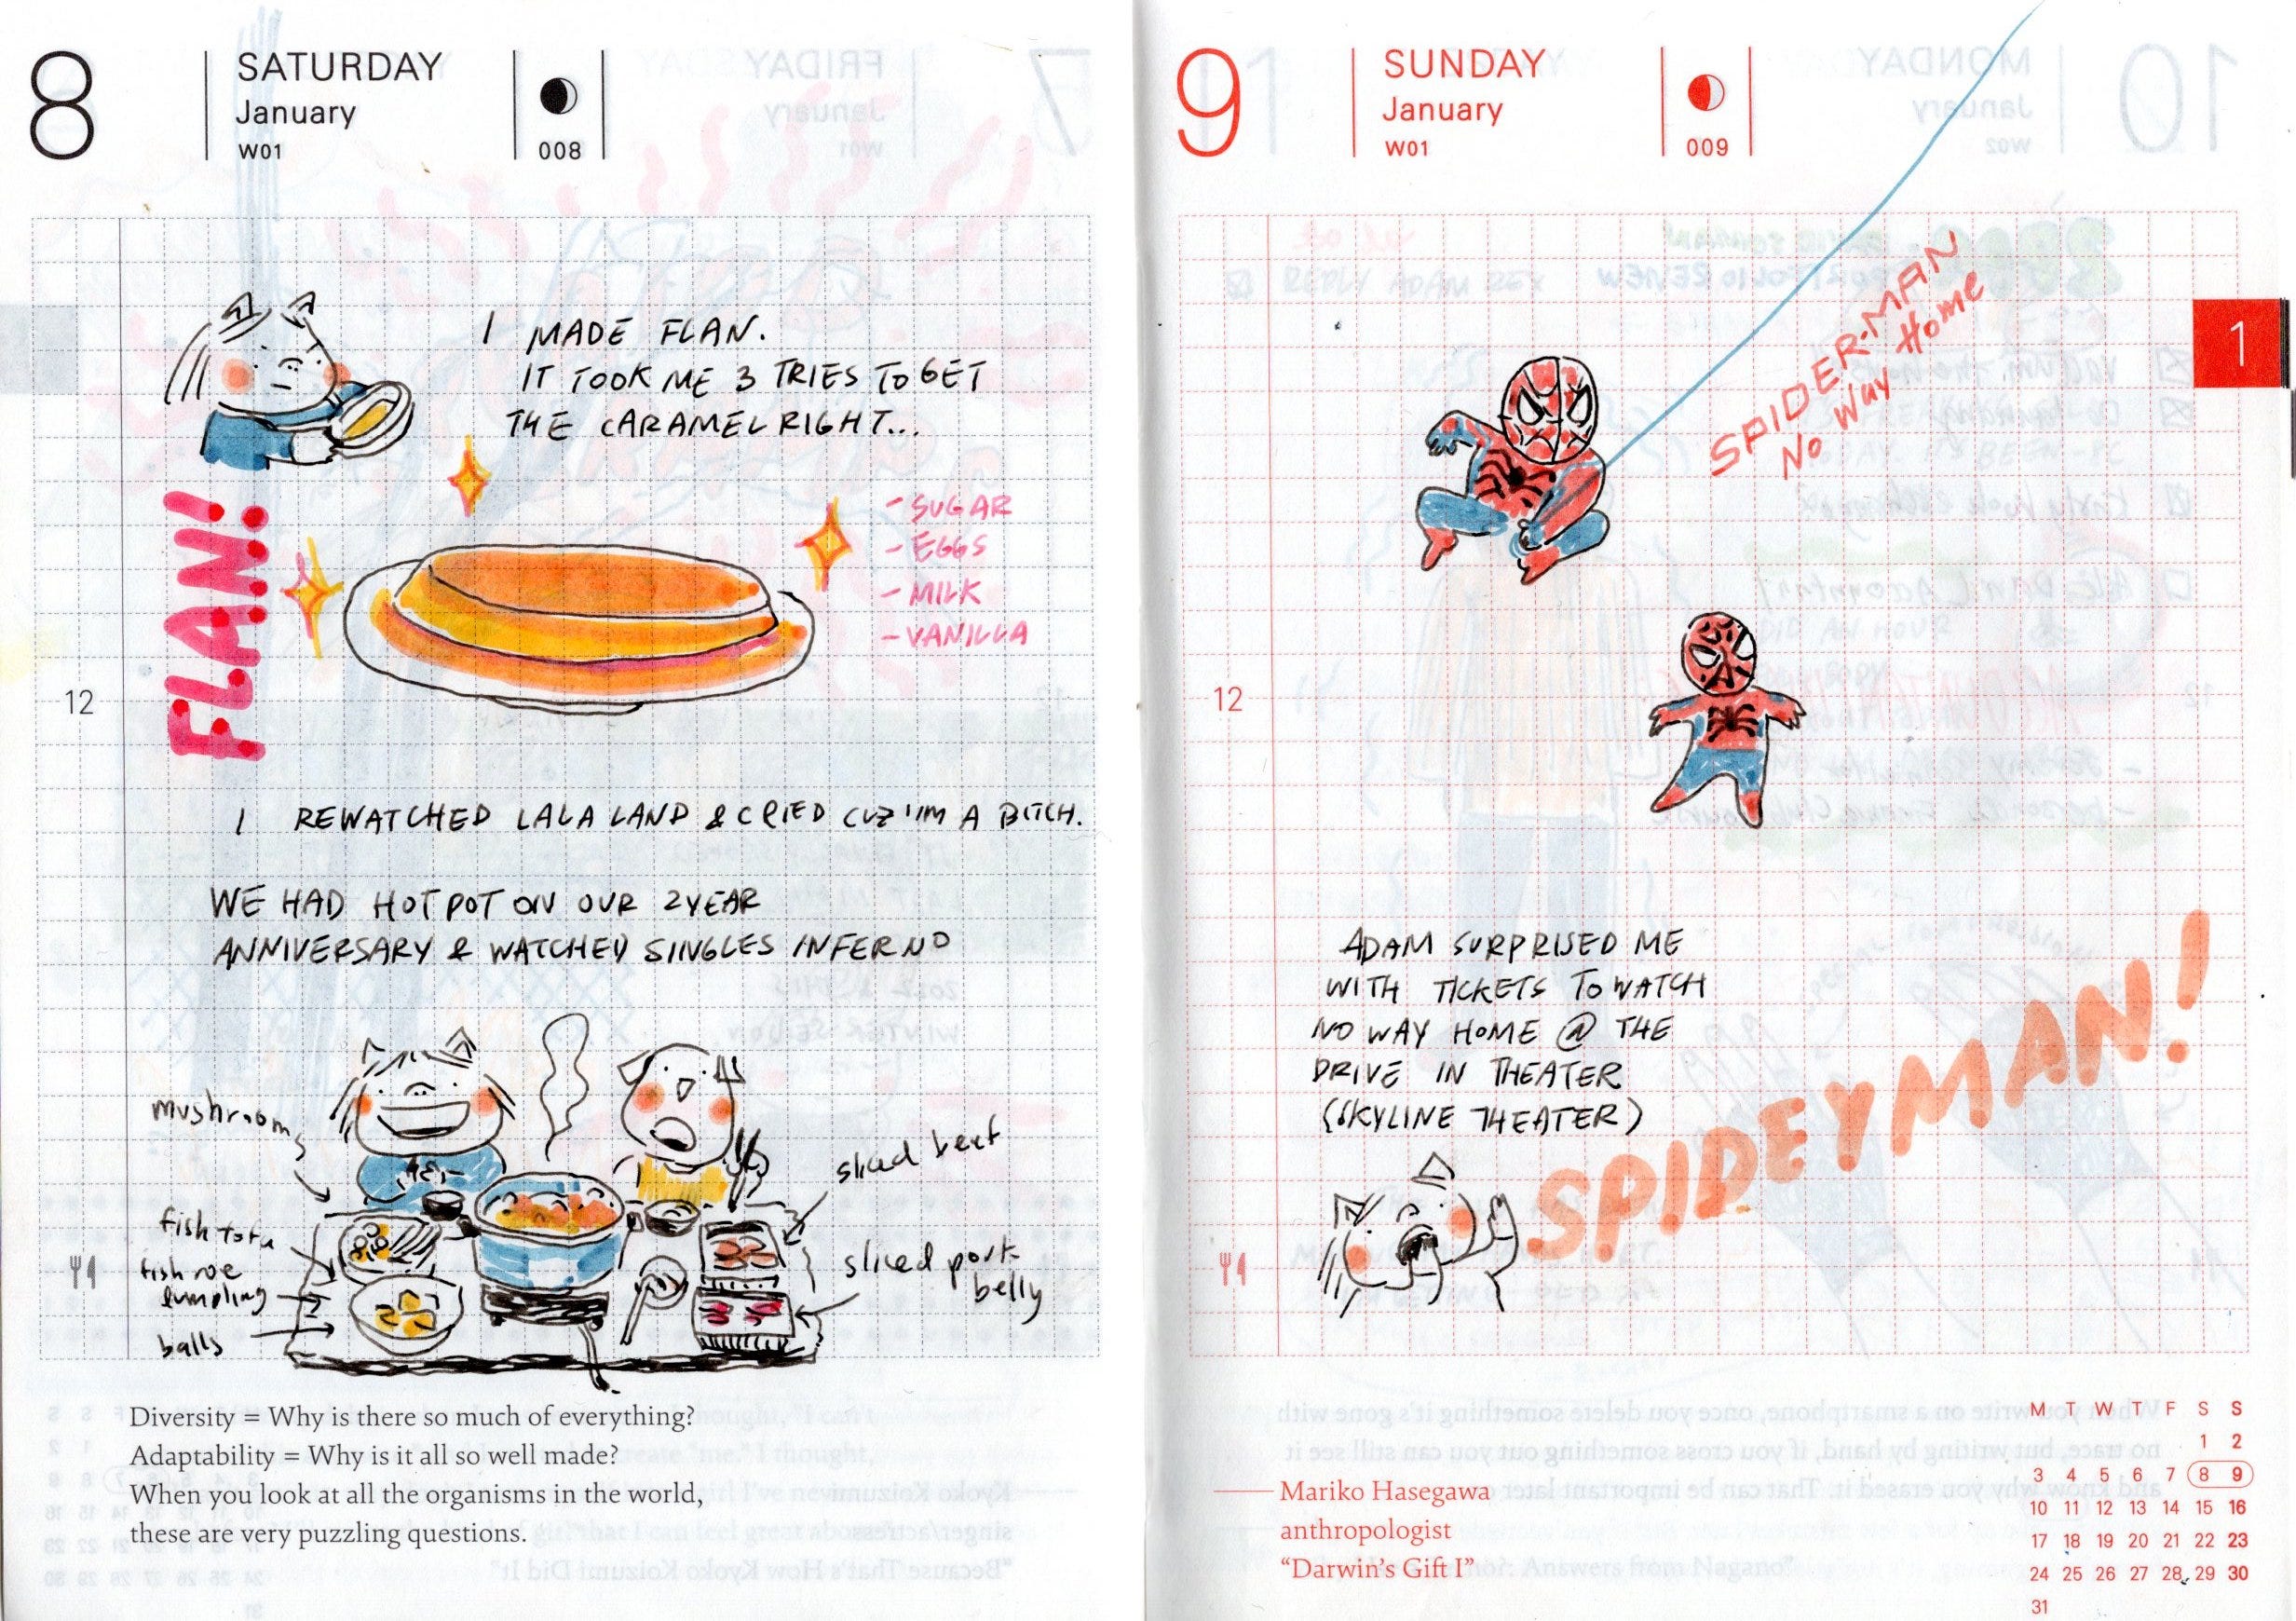 8
SATURDAY
January
W01
008
I MADE FLAN.
IT TOOK ME 3 TRIES TO GET
THE CARAMEL RIGHT...
FLAN!
- SUGAR
- EGGS
- MILK
- VANILLA
12
I REWATCHED LALA LAND & CRIED CUZ I'M A BITCH.
WE HAD HOT POT ON OUR 2 YEAR
ANNIVERSARY & WATCHED SINGLES INFERNO
mushrooms
fish tofu
fish roe
dumpling
balls
sliced beef
sliced pork
belly
Diversity = Why is there so much of everything?
Adaptability = Why is it all so well made?
When you look at all the organisms in the world,
these are very puzzling questions.
9
SUNDAY
January
W01
009
1
SPIDER-MAN
No Way Home
12
ADAM SURPRISED ME
WITH TICKETS TO WATCH
NO WAY HOME @ THE
DRIVE IN THEATER
(SKYLINE THEATER)
SPIDEYMAN!
Mariko Hasegawa
anthropologist
“Darwin's Gift I”
M T W T F S S
1 2
3 4 5 6 7 8 9
10 11 12 13 14 15 16
17 18 19 20 21 22 23
24 25 26 27 28 29 30
31